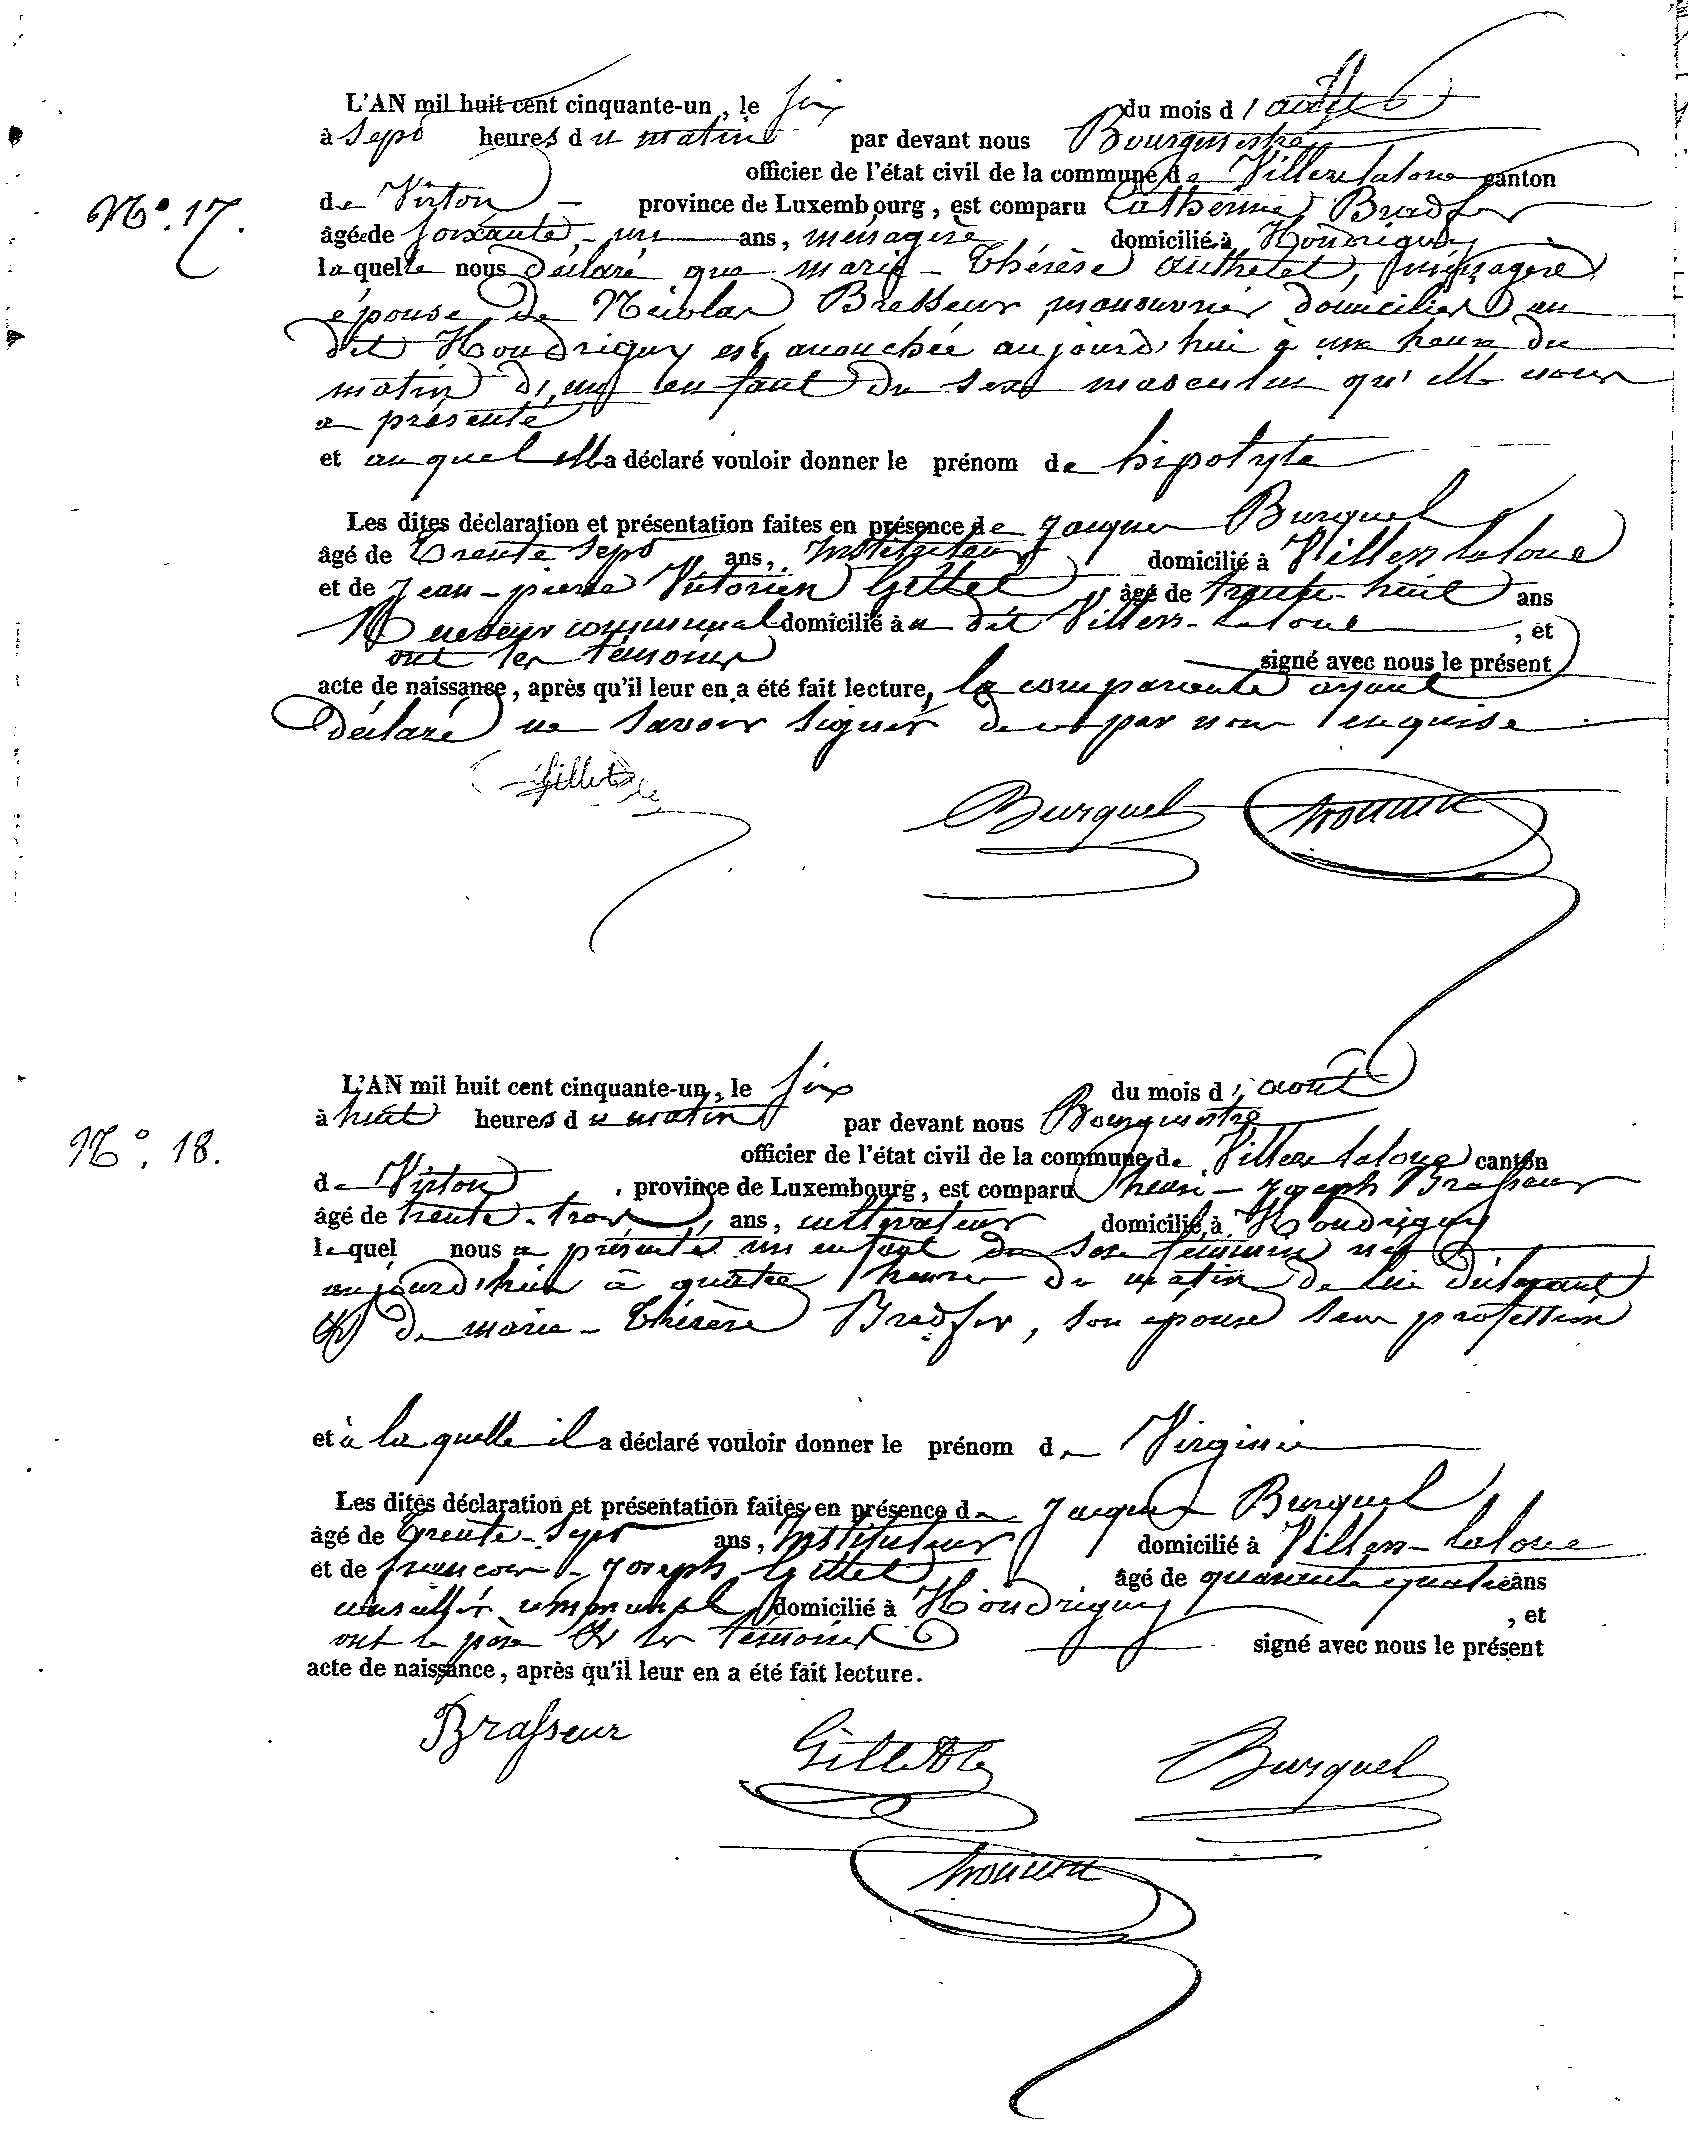 L'AN mil huit cent cinquante-un, le six du mois d'août
à sept heures du matin par devant nous Bourgmestre
officier de l'état civil de la commune de Villers laloue canton
N°. 17.
de Virton province de Luxembourg, est comparu Catherine Bradfer
âgée de soixante-un ans, ménagère domicilié à Houdrigny
laquelle nous déclaré que marie-Thérèse authelet, ménagère
épouse de Nicolas Brasseur manouvrier domicilié au
dit Houdrigny est accouchée aujourd'hui à une heure du
matin d'un enfant du sexe masculin qu'elle nous
a présenté
et auquel elle a déclaré vouloir donner le prénom de hipolyte
Les dites déclaration et présentation faites en présence de Jacques Burquel
âgé de Trente sept ans, Instituteur domicilié à Villers laloue
et de Jean-pierre Victorien Gillet âgé de trente-huit ans
Receveur communal domicilié au dit Villers-laloue, et
ont les témoins signé avec nous le présent
acte de naissance, après qu'il leur en a été fait lecture, la comparante ayant
déclaré ne savoir signer de ce par nous enquise
Gillet
Burquel
L'AN mil huit cent cinquante-un, le six du mois d'août
à huit heures du matin par devant nous Bourgmestre
N°. 18.
officier de l'état civil de la commune de Villers laloue canton
de Virton province de Luxembourg, est comparu henri-Joseph Brasseur
âgé de trente-trois ans, cultivateur domicilié à Houdrigny
lequel nous a présenté un enfant du sexe féminin né
aujourd'hui à quatre heures du matin de lui déclarant
et de marie-Thérèse Bradfer, son épouse sans profession
et à laquelle il a déclaré vouloir donner le prénom de Virginie
Les dites déclaration et présentation faites en présence de Jacques Burquel
âgé de Trente-sept ans, Instituteur domicilié à Villers-laloue
et de francois-Joseph Gillet âgé de quarante quatre ans
conseiller communal domicilié à Houdrigny, et
ont le père et les témoins signé avec nous le présent
acte de naissance, après qu'il leur en a été fait lecture.
Brasseur
Gillet
Burquel